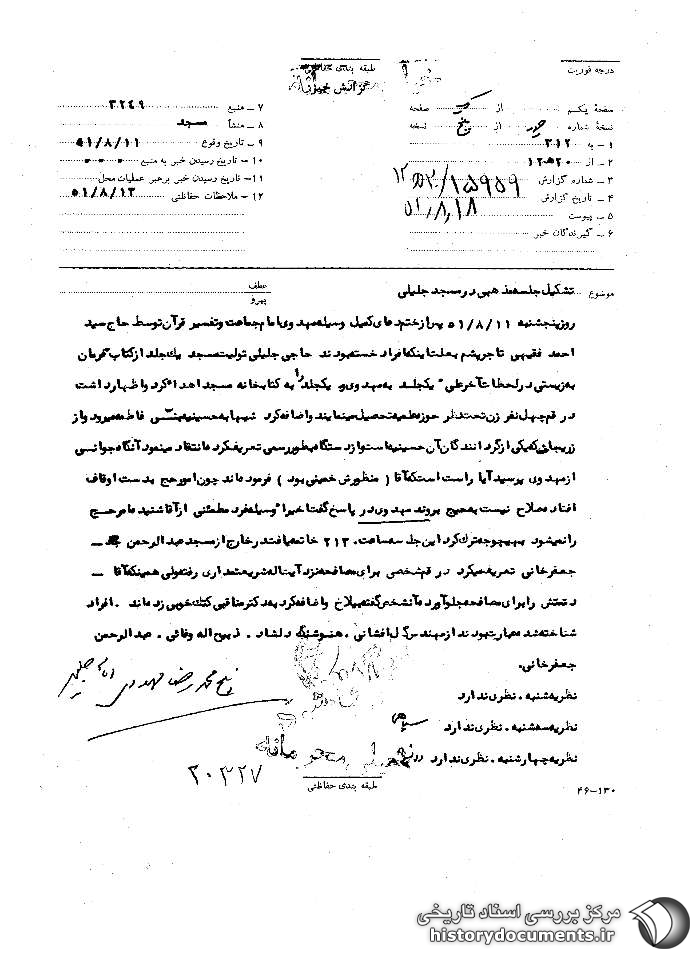 درجه فوریت
طبقه بندی حفاظتی
صفحهٔ یکم از صفحه
نسخهٔ شماره از پنج نسخه
۱ – به ۳۱۲
۲ – از ۱۲ ۲۰
۳ – شماره گزارش ۱۵۹۵۹
۴ – تاریخ گزارش ۵۱/۸/۱۸
۵ – پیوست
۶ – گیرندگان خبر
۷ – منبع ۳۲۴۹
۸ – منشأ مسجد
۹ – تاریخ وقوع ۵۱/۸/۱۱
۱۰ – تاریخ رسیدن خبر به منبع
۱۱ – تاریخ رسیدن خبر برهبر عملیات محل
۱۲ – ملاحظات حفاظتی ۵۱/۸/۱۳
موضوع تشکیل جلسه مذهبی در مسجد جلیلی
عطف
پیرو
روز پنجشنبه ۵۱/۸/۱۱ پس از ختم دعای کمیل وسیله مهدوی امام جماعت و تفسیر قرآن توسط حاج سید
احمد فقیهی تاجر پشم بعلت اینکه افراد خسته بودند حاجی جلیلی تولیت مسجد یک جلد از کتاب
بهزیستی در لحظات آخر علی یکجلد به مهدوی و یکجلد را به کتابخانه مسجد اهدا کرد و اظهار داشت
در قم چهل نفر زن تحت نظر حوزه علمیه تحصیل مینمایند و اضافه کرد شبها به حسینیه بنی فاطمه میرود و از
یکی از گردانندگان آن حسینیه است و از دستگاه بطور رسمی تعریف کرد ما انتقاد مینمود آنگاه جوانی
از مهدوی پرسید آیا راست است که آقا ( منظورش خمینی بود ) فرموده اند چون امور حج بدست اوقاف
افتاده صلاح نیست به حج بروند مهدوی در پاسخ گفت اخیرا وسیله فرد مطمئنی از آقا شنیده ام حج
را نمیشود بهیچوجه ترک کرد این جلسه ساعت ۲۱۳ خاتمه یافت در خارج از مسجد عبدالرحمن
جعفرخانی تعریف میکرد در قم شخصی برای مصافحه نزد آیت اله شریعتمداری رفته ولی همینکه آقا –
دستش را برای مصافحه جلو آورده آنشخص گفته و اضافه کرد به دکتر مناقبی کتک خوبی زده اند . افراد
شناخته شده عبارت بودند از مهندس گل افشانی ، هوشنگ دلشاد . ذبیح اله وفائی . عبدالرحمن
جعفرخانی.
شیخ محمد رضا مهدوی امام جلیلی
نظریه شنبه . نظری ندارد
نظریه سه شنبه . نظری ندارد
نظریه چهارشنبه . نظری ندارد
۲۰۳۲۷
طبقه بندی حفاظتی
۴۶–۱۳۰
مرکز بررسی اسناد تاریخی
historydocuments.ir